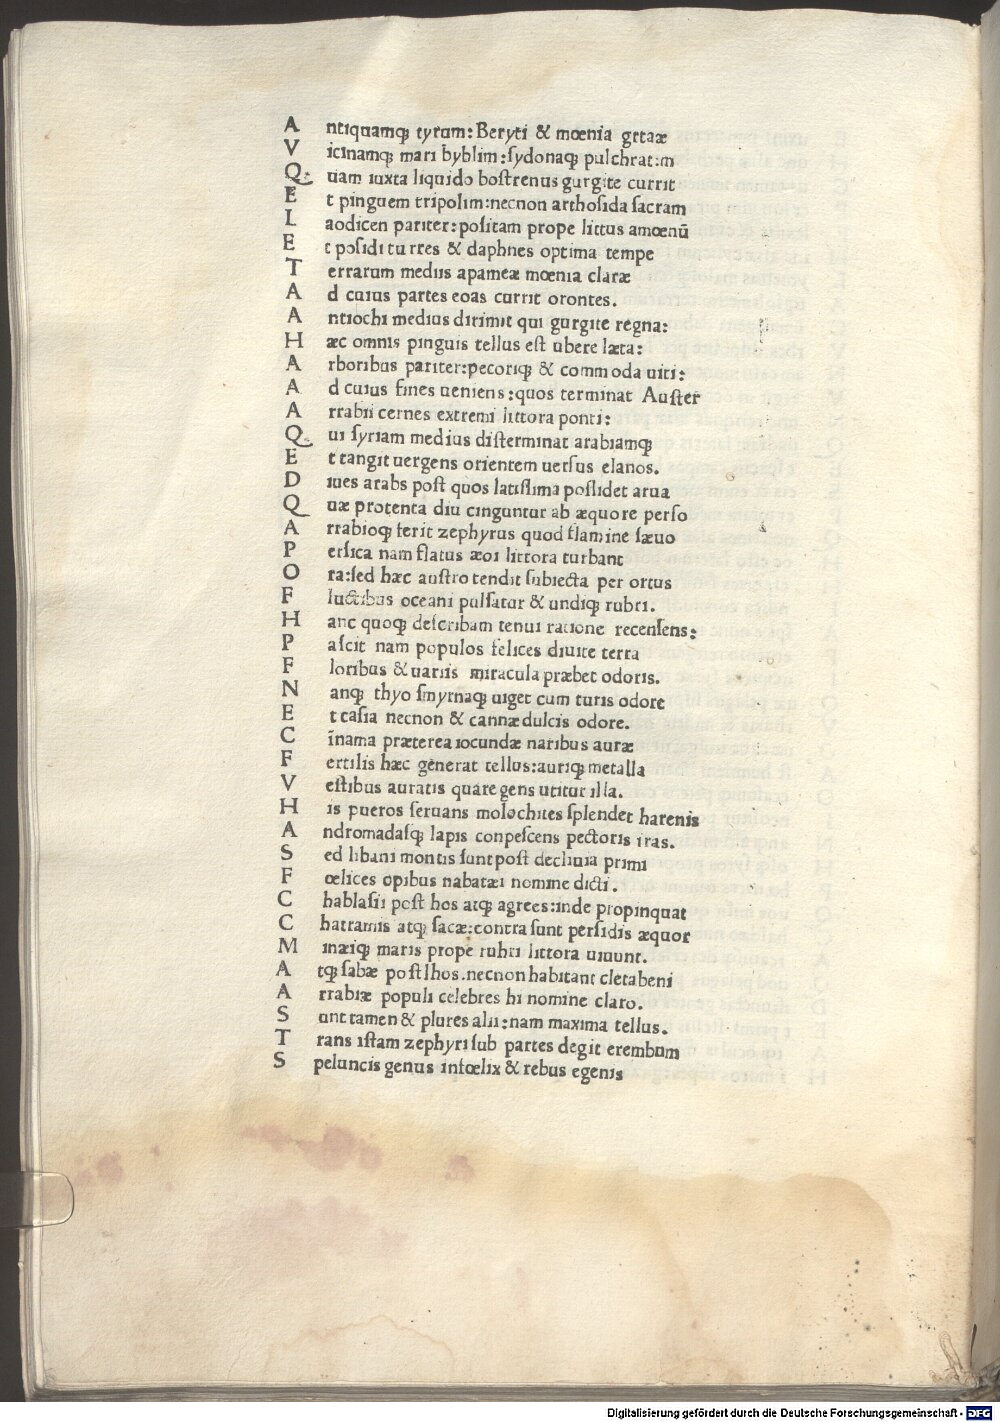 Antiquamqꝫ tyrum: Beryti & mœnia getaæ
Vicinamqꝫ mari byblim: sydonaqꝫ pulchratim
Quam iuxta liquido bostrenus gurgite currit
Et pinguem tripolim: necnon arthosida sacram
Laodicen pariter: positam prope littus amœnū
Et posidi turres & daphnes optima tempe
Terrarum mediis apameæ mœnia claræ
Ad cuius partes eoas currit orontes.
Antiochi medius dirimit qui gurgite regna:
Hæc omnis pinguis tellus est ubere læta:
Arboribus pariter: pecoriqꝫ & commoda uiti:
Ad cuius fines ueniens: quos terminat Auster
Arrabii cernes extremi littora ponti:
Qui syriam medius disterminat arabiamqꝫ
Et tangit uergens orientem uersus elanos.
Diues arabs post quos latissima possidet arua
Quæ protenta diu cinguntur ab æquore perso
Arrabioqꝫ ferit zephyrus quod flamine sæuo
Persica nam flatus æoi littora turbant
Ora: sed hæc austro tendit subiecta per ortus
Fluctibus oceani pulsatur & undiqꝫ rubri.
Hanc quoqꝫ describam tenui ratione recensens:
Pascit nam populos felices diuite terra
Floribus & uariis miracula præbet odoris.
Nanqꝫ thyo smyrnaqꝫ uiget cum turis odore
Et casia necnon & cannæ dulcis odore.
Cīnama præterea iocundæ naribus auræ
Fertilis hæc generat tellus: auriqꝫ metalla
Vestibus auratis quare gens utitur illa.
His pueros seruans molochites splendet harenis
Andromadasqꝫ lapis conpescens pectoris iras.
Sed libani montis sunt post decliuia primi
Fœlices opibus nabatæi nomine dicti.
Chablasii post hos atqꝫ agrees: inde propinquat
Chatramis atqꝫ sacæ: contra sunt persidis æquor
Minæiqꝫ maris prope rubri littora uiuunt.
Atqꝫ sabæ post hos. necnon habitant cletabeni
Arrabiæ populi celebres hi nomine claro.
Sunt tamen & plures alii: nam maxima tellus.
Trans istam zephyri sub partes degit erembum
Speluncis genus infœlix & rebus egenis
Digitalisierung gefördert durch die Deutsche Forschungsgemeinschaft - DFG